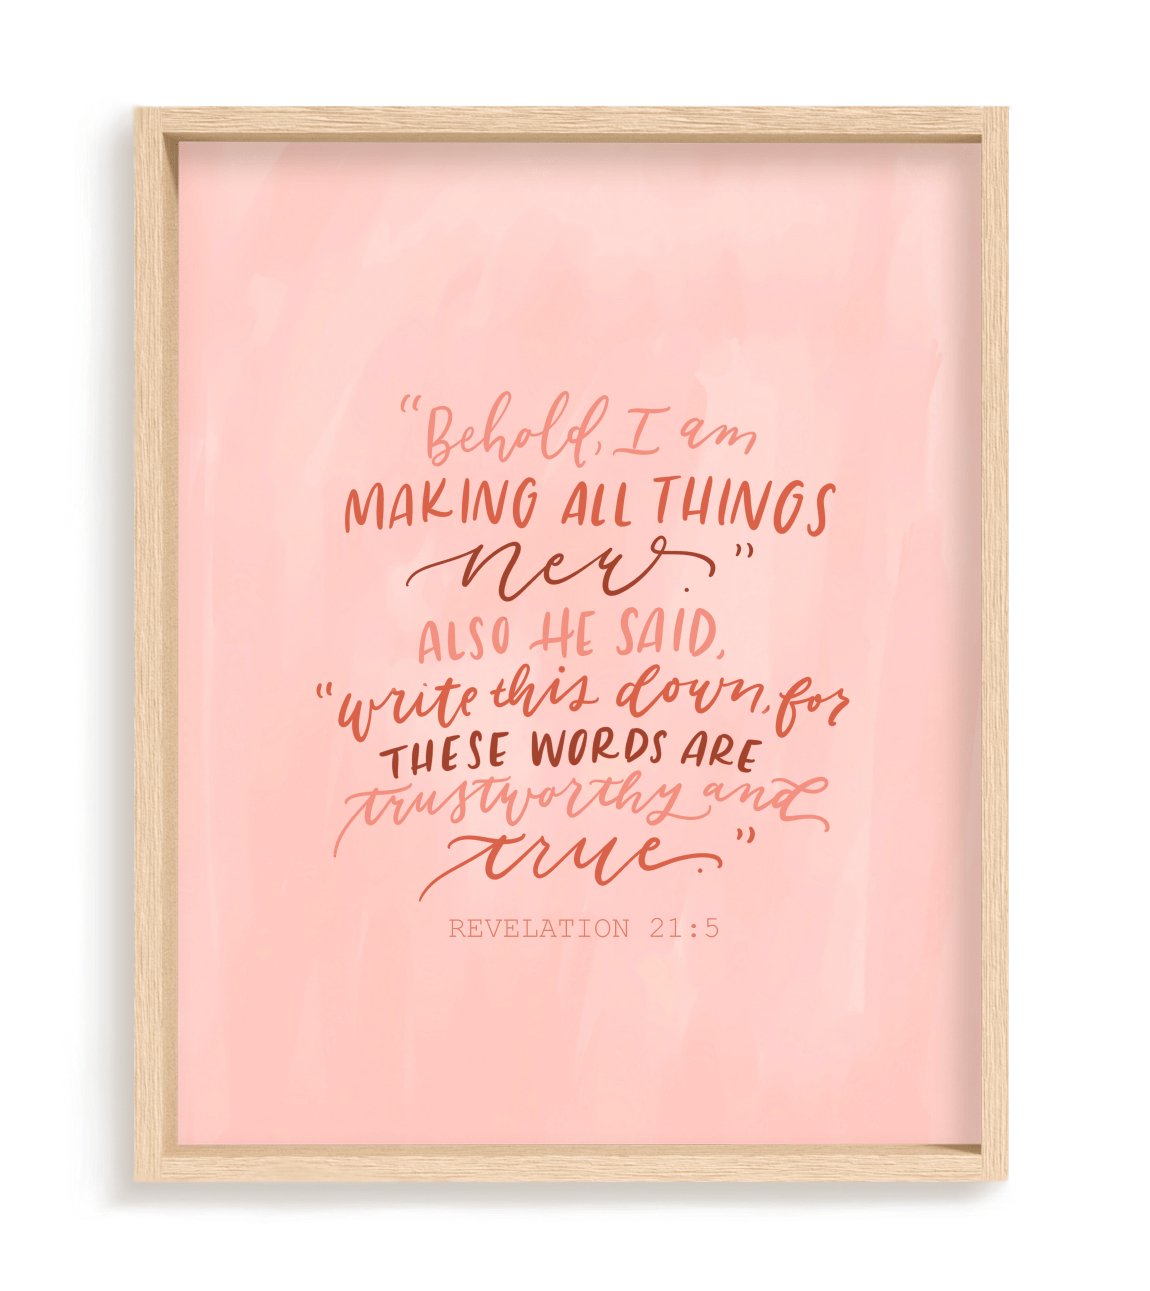 “Behold, I am
MAKING ALL THINGS
new.”
ALSO HE SAID,
“write this down, for
THESE WORDS ARE
trustworthy and
true.”
REVELATION 21:5